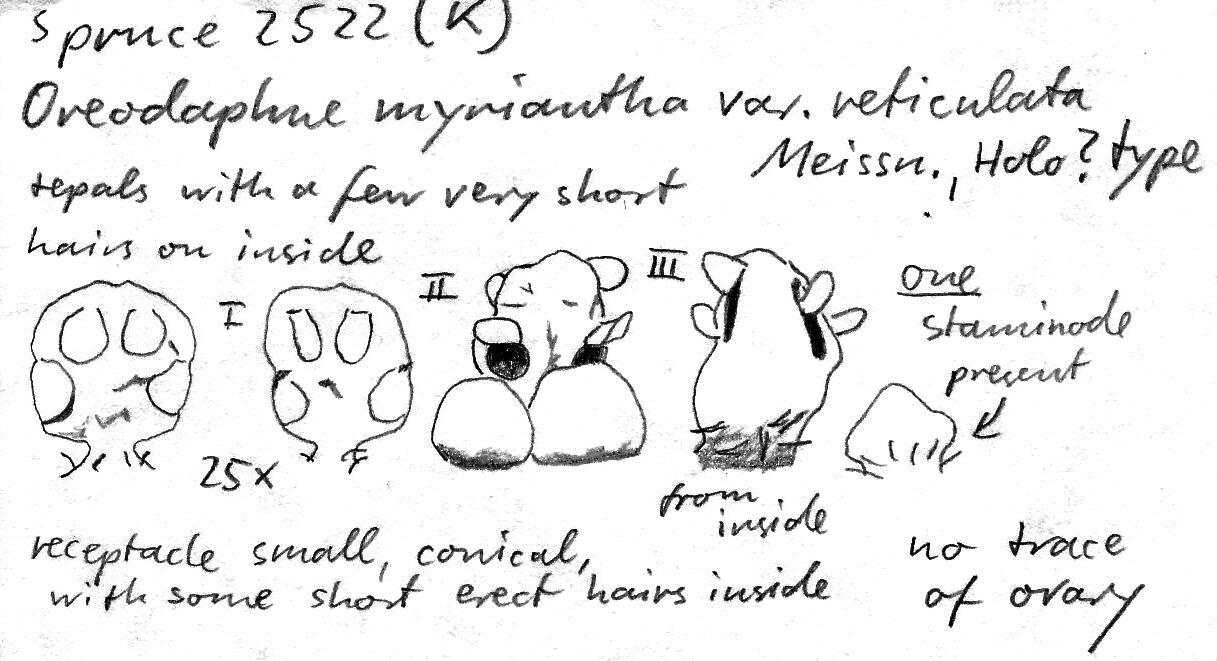 Spruce 2522 (K)
Oreodaphne myriantha var. reticulata
Meissn., Holo? type
tepals with a few very short
hairs on inside
I
II
III
one
staminode
present
25x
from
inside
receptacle small, conical,
with some short erect hairs inside
no trace
of ovary